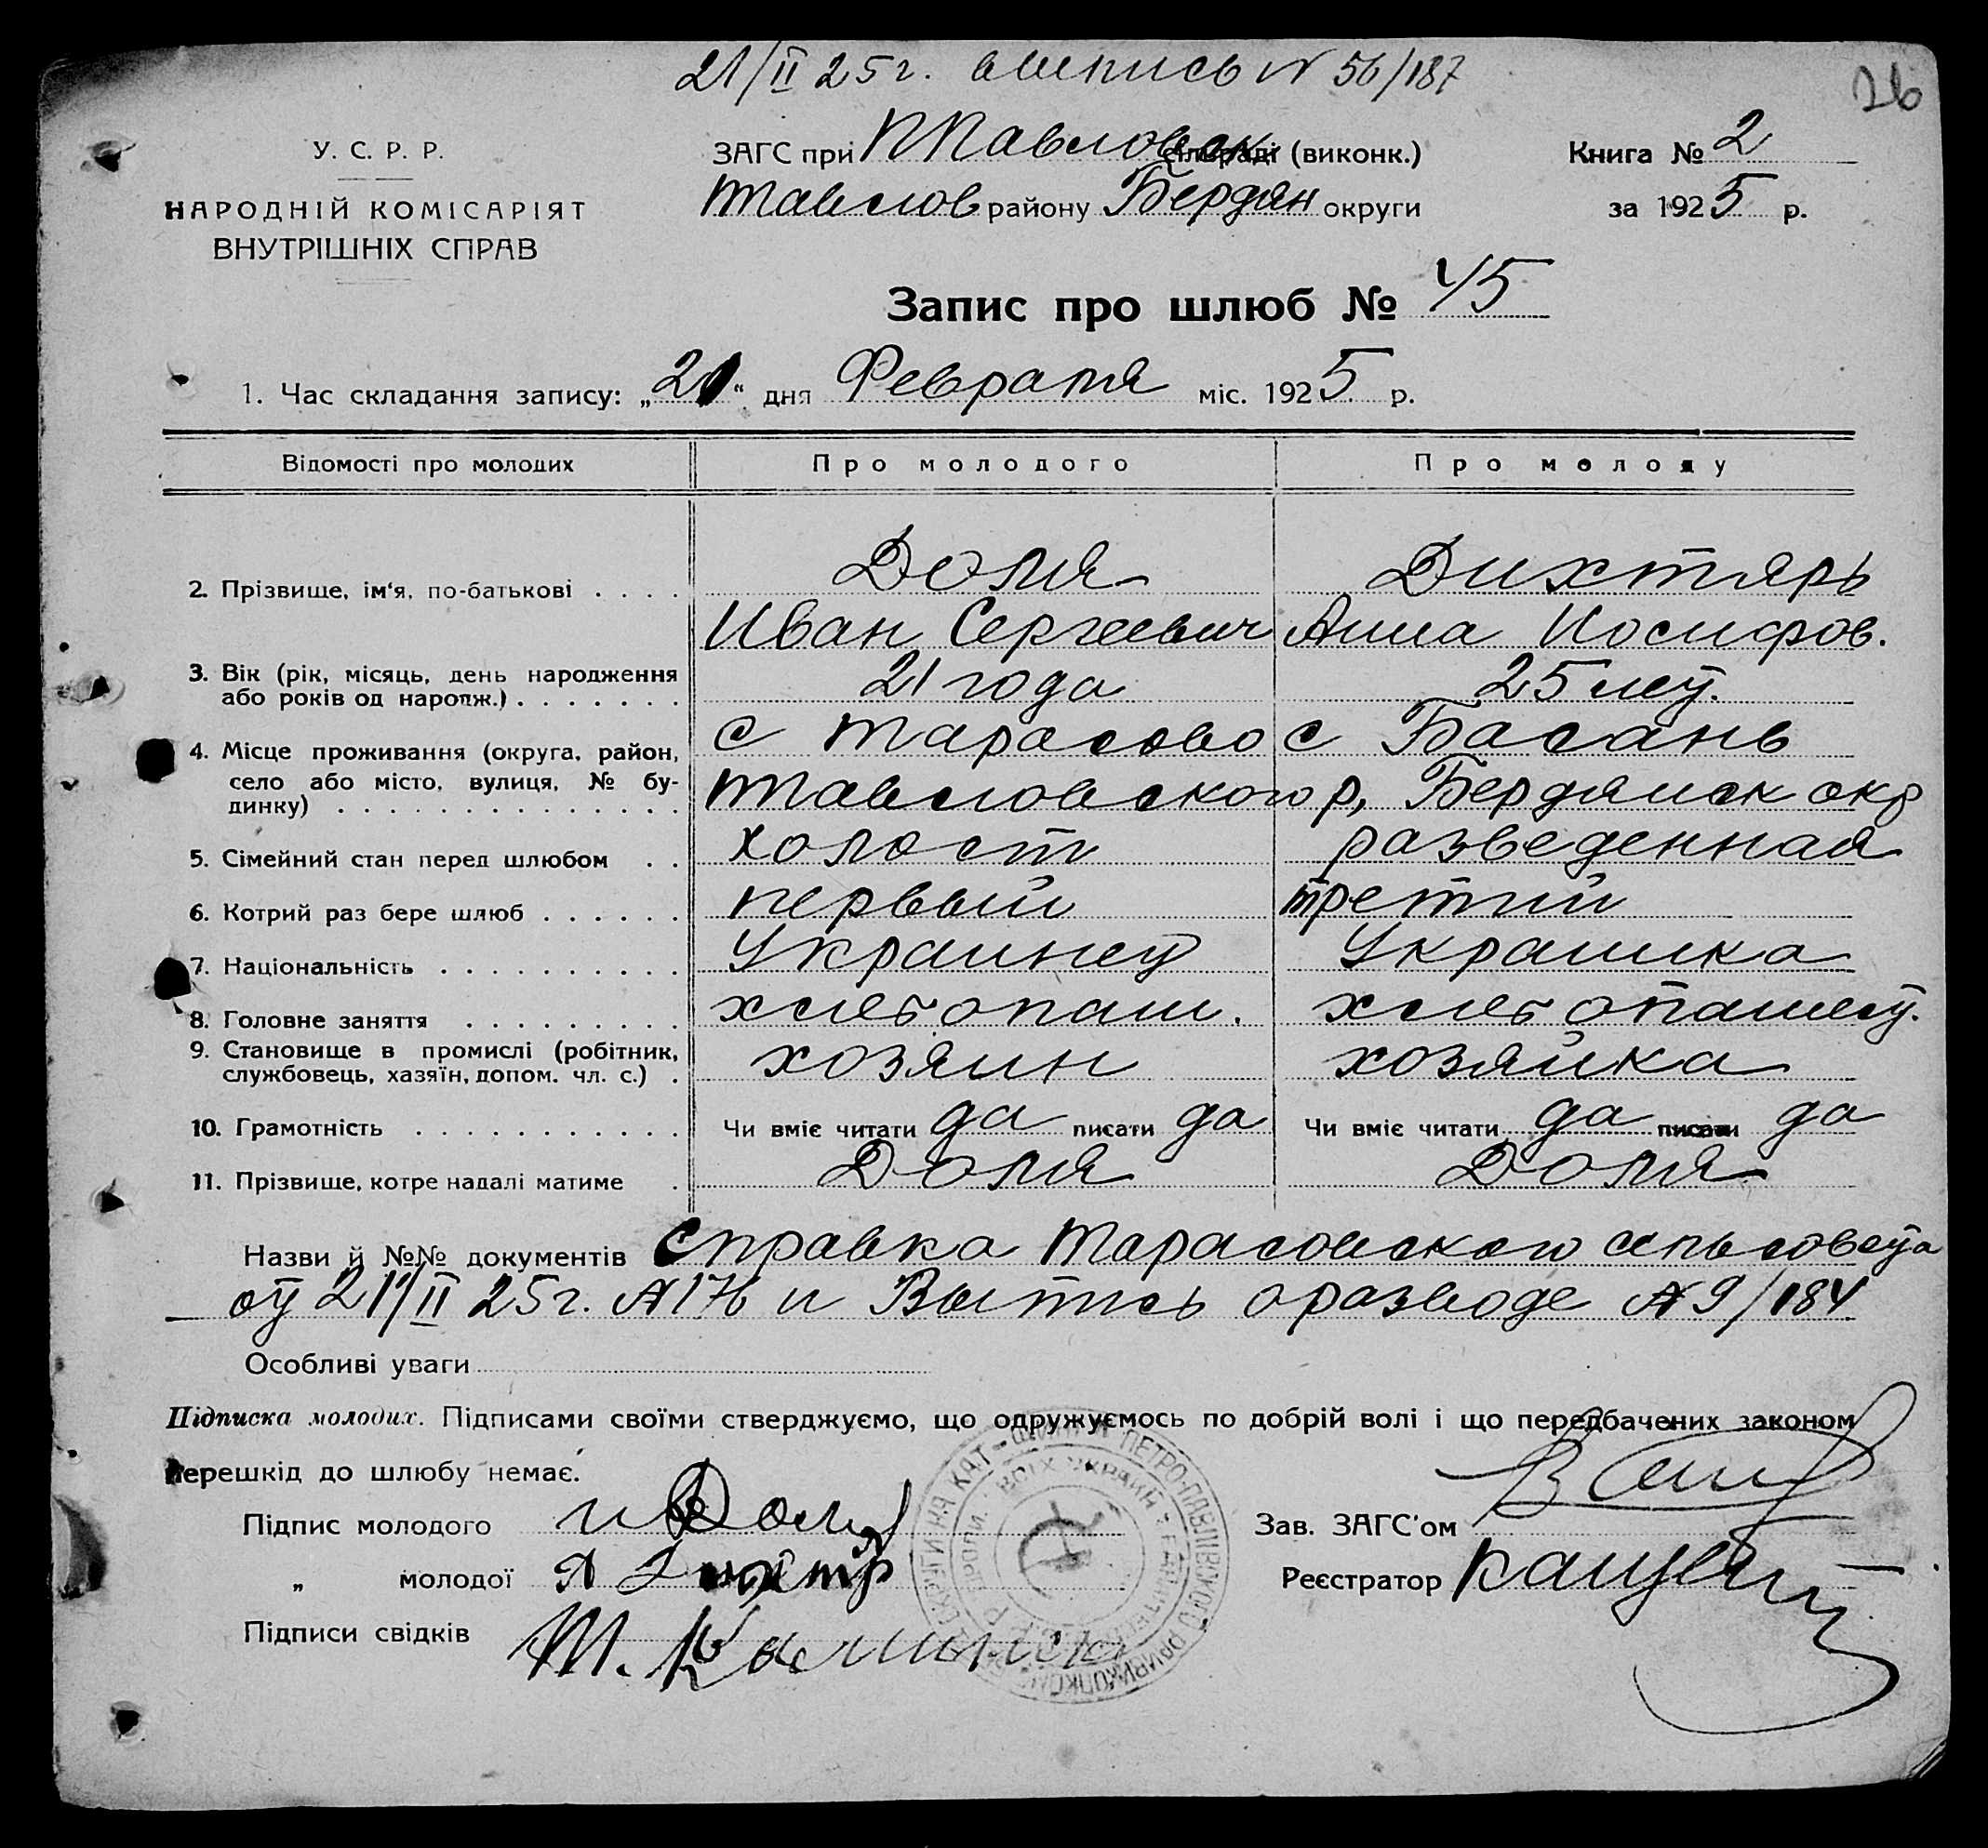 21/II 25г. выпись N 56/187
26
У. С. Р. Р.
НАРОДНІЙ КОМІСАРІЯТ
ВНУТРІШНІХ СПРАВ
ЗАГС при ППавловск сільраді (виконк.)
Павлов району Бердян округи
Книга № 2
за 1925 р.
Запис про шлюб № 45
1. Час складання запису: „21“ дня Февраля міс. 1925 р.
Відомості про молодих
Про молодого
Про молоду
2. Прізвище, ім'я, по-батькові
Доля
Иван Сергеевич
Дихтярь
Анна Иосифов.
3. Вік (рік, місяць, день народження
або років од народж.)
21 года
25 лет.
4. Місце проживання (округа, район,
село або місто, вулиця, № бу-
динку)
с Тарасово
с Басань
Павловского р, Бердянск окр
5. Сімейний стан перед шлюбом
холост
разведенная
6. Котрий раз бере шлюб
первый
третий
7. Національність
Украинец
Украинка
8. Головне заняття
хлебопаш.
хлебопашец.
9. Становище в промислі (робітник,
службовець, хазяїн, допом. чл. с.)
хозяин
хозяйка
10. Грамотність
Чи вміє читати да писати да
Чи вміє читати да писати да
11. Прізвище, котре надалі матиме
Доля
Доля
Назви й №№ документів Справка Тарасовского сельсовета
от 21/II 25г. N 176 и Выпись о разводе N 9/184
Особливі уваги
Підписка молодих. Підписами своїми стверджуємо, що одружуємось по добрій волі і що передбачених законом
перешкід до шлюбу немає.
Підпис молодого И Доля
„ молодої А Дихтяр
Підписи свідків
Зав. ЗАГС'ом
Реєстратор